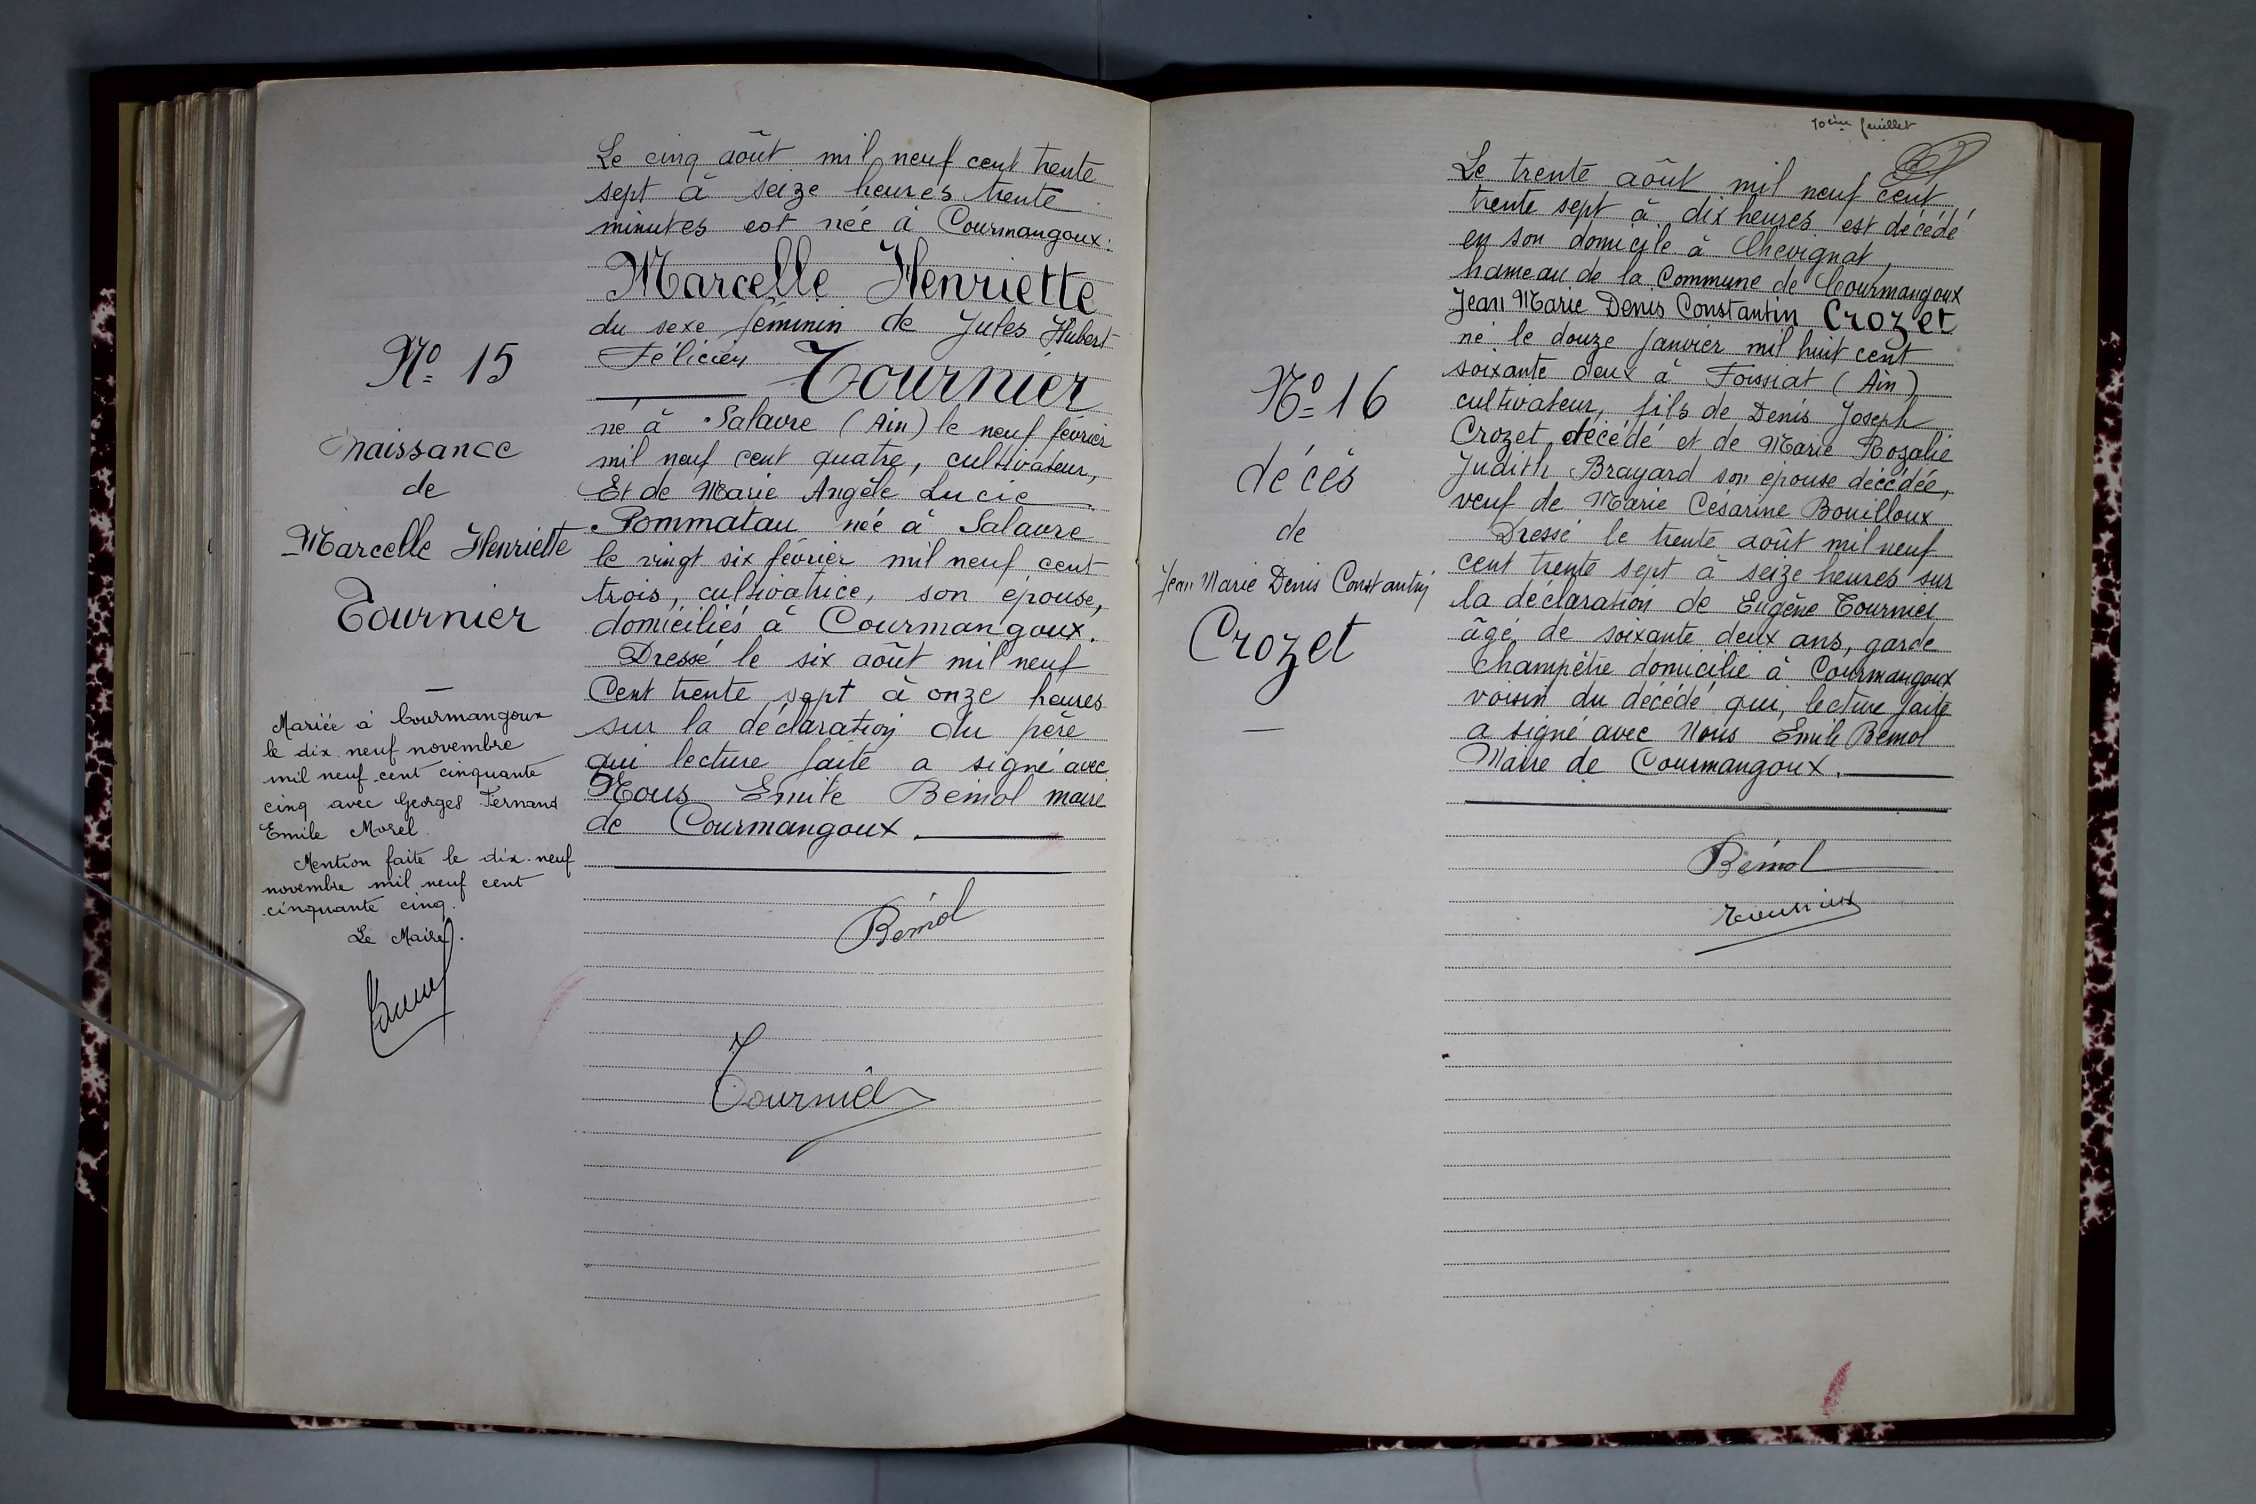 Nº 15
naissance
de
Marcelle Henriette
Tournier
Mariée à Courmangoux
le dix neuf novembre
mil neuf cent cinquante
cinq avec Georges Fernand
Emile Morel.
Mention faite le dix-neuf
novembre mil neuf cent
cinquante cinq.
Le Maire.
Le cinq août mil neuf cent trente
sept à seize heures trente
minutes est née à Courmangoux:
Marcelle Henriette
du sexe féminin de Jules Hubert
Félicien Tournier
né à Salavre (Ain) le neuf février
mil neuf cent quatre, cultivateur,
Et de Marie Angèle Lucie
Pommatau née à Salavre
le vingt six février mil neuf cent
trois, cultivatrice, son épouse,
domiciliés à Courmangoux.
Dressé le six août mil neuf
Cent trente sept à onze heures
sur la déclaration du père
qui lecture faite a signé avec
Nous Emile Bémol maire
de Courmangoux.
Bémol
Tournier
10ème feuillet
Nº 16
décès
de
Jean Marie Denis Constantin
Crozet
Le trente août mil neuf cent
trente sept à dix heures est décédé
en son domicile à Chevignat,
hameau de la Commune de Courmangoux
Jean Marie Denis Constantin Crozet
né le douze janvier mil huit cent
soixante deux à Foissiat (Ain)
cultivateur, fils de Denis Joseph
Crozet décédé et de Marie Rozalie
Judith Brayard son épouse décédée,
veuf de Marie Césarine Bouilloux
Dressé le trente août mil neuf
cent trente sept à seize heures sur
la déclaration de Eugène Tournier
âgé de soixante deux ans, garde
Champêtre domicilié à Courmangoux
voisin du décédé qui, lecture faite
a signé avec Nous Emile Bémol
Maire de Courmangoux.
Bémol